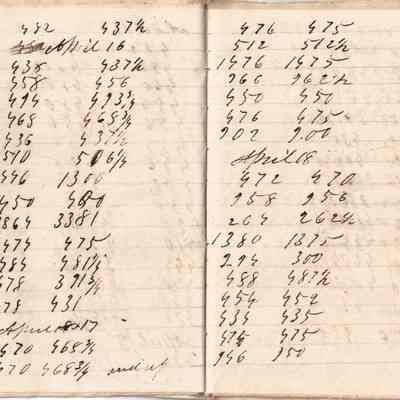 432 437½
April 16
438 437½
458 456
494 493¾
468 468¾
436 437½
510 506¼
446 1300
450 480
3864 3381
474 475
484 481¼
478 391¾
478 431
April 17
470 468¾
470 468¾ and up
476 475
512 512½
1476 1475
966 962½
450 450
476 475
902 900
April 18
472 470
958 956
264 262½
1380 1375
294 300
488 487½
454 452
434 435
474 475
946 950